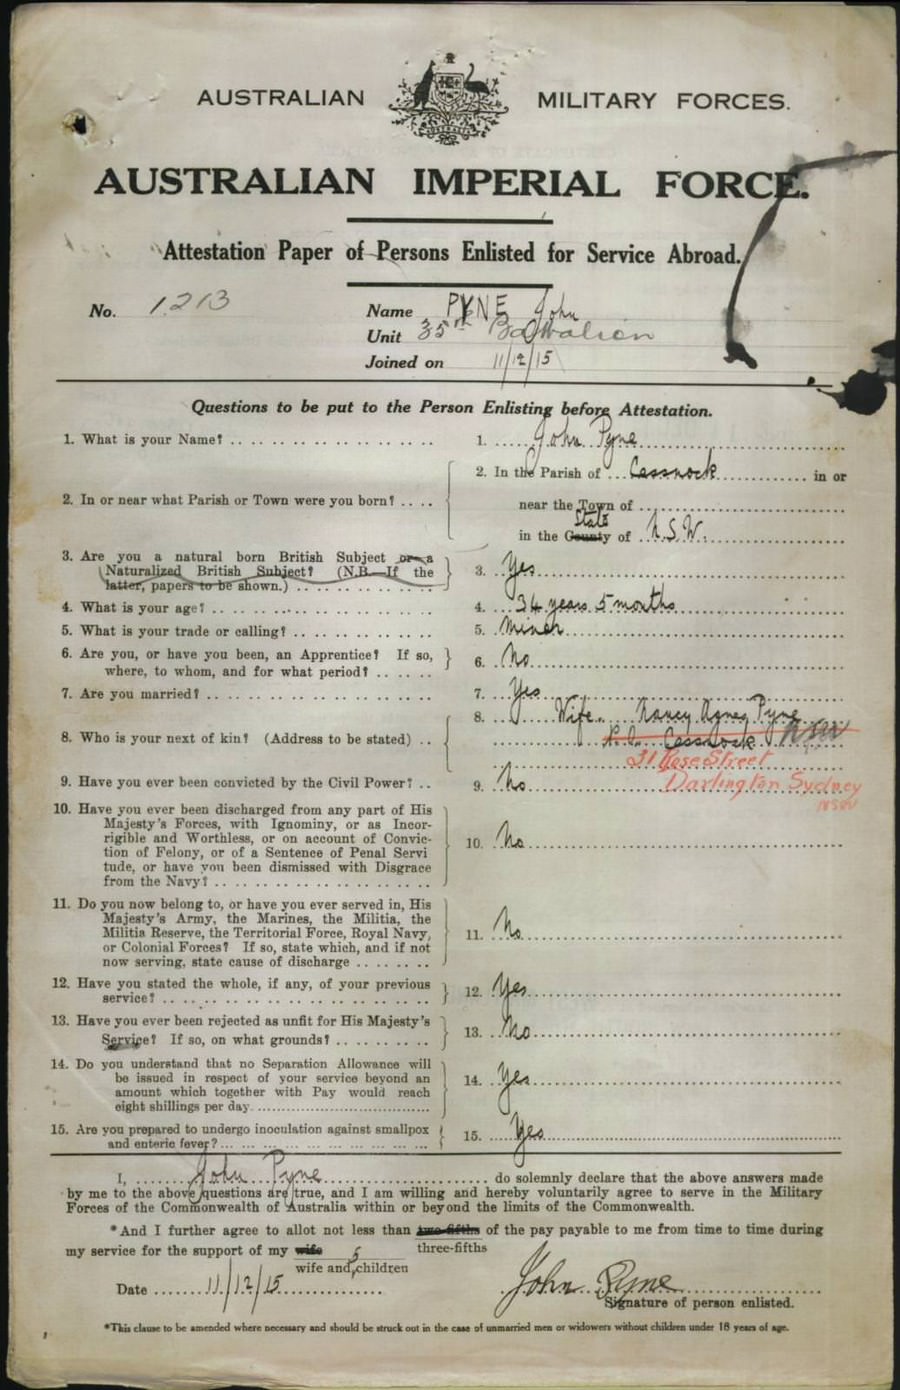 AUSTRALIAN MILITARY FORCES.
AUSTRALIA
AUSTRALIAN IMPERIAL FORCE.
Attestation Paper of Persons Enlisted for Service Abroad.
No. 1213
Name PYNE John
Unit 35th Battalion
Joined on 11/12/15
Questions to be put to the Person Enlisting before Attestation.
1. What is your Name? 1. John Pyne
2. In or near what Parish or Town were you born? 2. In the Parish of Cessnock in or
near the Town of
State
in the County of N.S.W.
3. Are you a natural born British Subject or a
Naturalized British Subject? (N.B.—If the
latter, papers to be shown.) 3. Yes
4. What is your age? 4. 34 years 5 months
5. What is your trade or calling? 5. Miner
6. Are you, or have you been, an Apprentice? If so,
where, to whom, and for what period? 6. No
7. Are you married? 7. Yes
8. Who is your next of kin? (Address to be stated) 8. Wife. Nancy Agnes Pyne
Cessnock NSW
31 Rose Street
Darlington Sydney
NSW
9. Have you ever been convicted by the Civil Power? 9. No
10. Have you ever been discharged from any part of His
Majesty's Forces, with Ignominy, or as Incor-
rigible and Worthless, or on account of Convic-
tion of Felony, or of a Sentence of Penal Servi
tude, or have you been dismissed with Disgrace
from the Navy? 10. No
11. Do you now belong to, or have you ever served in, His
Majesty's Army, the Marines, the Militia, the
Militia Reserve, the Territorial Force, Royal Navy,
or Colonial Forces? If so, state which, and if not
now serving, state cause of discharge 11. No
12. Have you stated the whole, if any, of your previous
service? 12. Yes
13. Have you ever been rejected as unfit for His Majesty's
Service? If so, on what grounds? 13. No
14. Do you understand that no Separation Allowance will
be issued in respect of your service beyond an
amount which together with Pay would reach
eight shillings per day 14. Yes
15. Are you prepared to undergo inoculation against smallpox
and enteric fever? 15. Yes
I, John Pyne do solemnly declare that the above answers made
by me to the above questions are true, and I am willing and hereby voluntarily agree to serve in the Military
Forces of the Commonwealth of Australia within or beyond the limits of the Commonwealth.
*And I further agree to allot not less than two-fifths of the pay payable to me from time to time during
three-fifths
my service for the support of my wife 5
wife and children
Date 11/12/15 John Pyne
Signature of person enlisted.
*This clause to be amended where necessary and should be struck out in the case of unmarried men or widowers without children under 18 years of age.